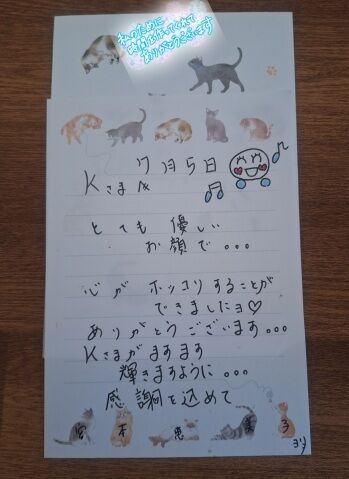 私のために
時間を作ってくれて
ありがとうございます
7月5日
Kさまへ
とても 優しい
お顔で...
心が ホッコリすることが
できましたヨ♡
ありがとうございます...
Kさまがますます
輝きますように...
感謝を込めて
宮本恵 子
ヨリ